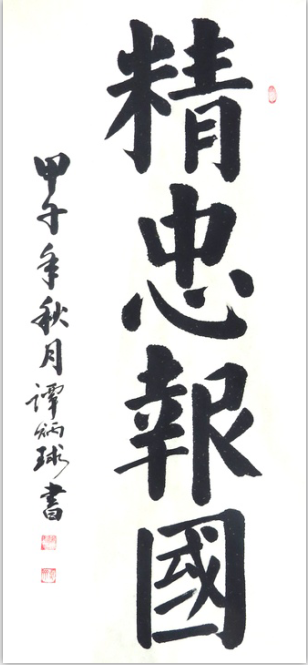 精忠報國
甲午年秋月譚炳球書